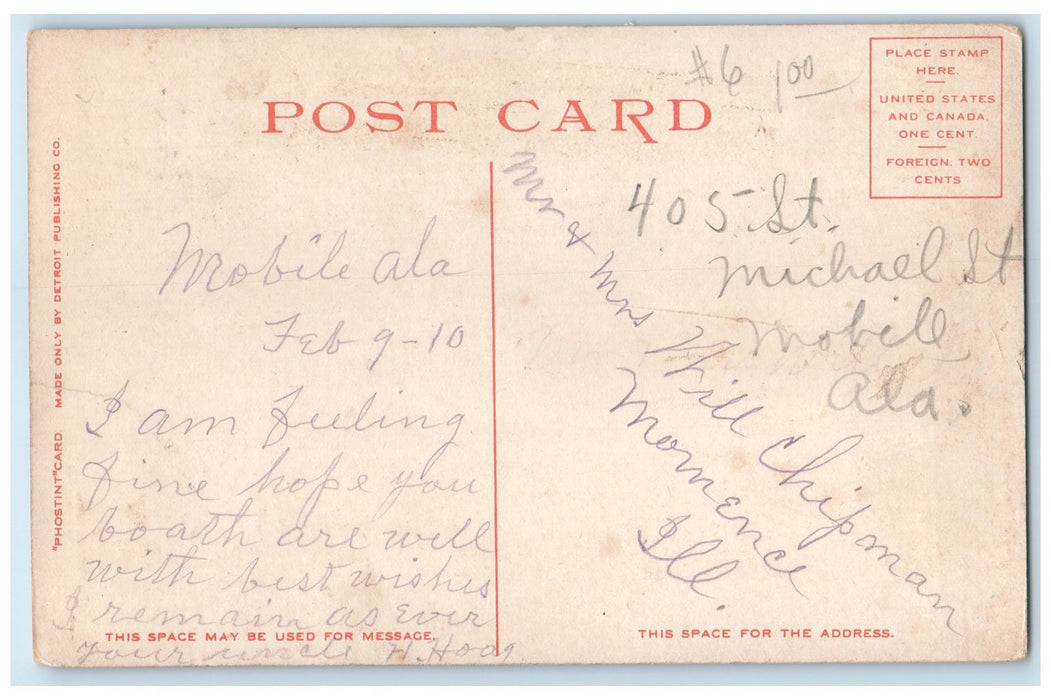 #6 1 00
PLACE STAMP
HERE.
UNITED STATES
AND CANADA,
ONE CENT.
FOREIGN. TWO
CENTS
POST CARD
"PHOSTINT" CARD. MADE ONLY BY DETROIT PUBLISHING CO.
Mobile Ala
Feb 9-10
I am feeling
fine hope you
boath are well
with best wishes
I remain as Ever
your uncle H. Hoag.
THIS SPACE MAY BE USED FOR MESSAGE.
405 St.
Michael St
Mobile
Ala.
Mr & Mrs Will Chipman
Momence
Ill.
THIS SPACE FOR THE ADDRESS.